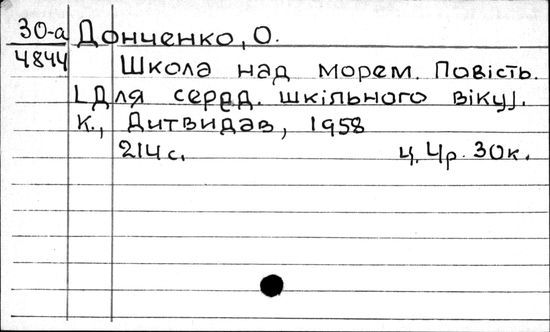 30-а Донченко, О.
4844
Школа над морем. Повість.
[Для серед. шкільного віку].
К., Дитвидав, 1958
214 с. ц. 4р. 30к.